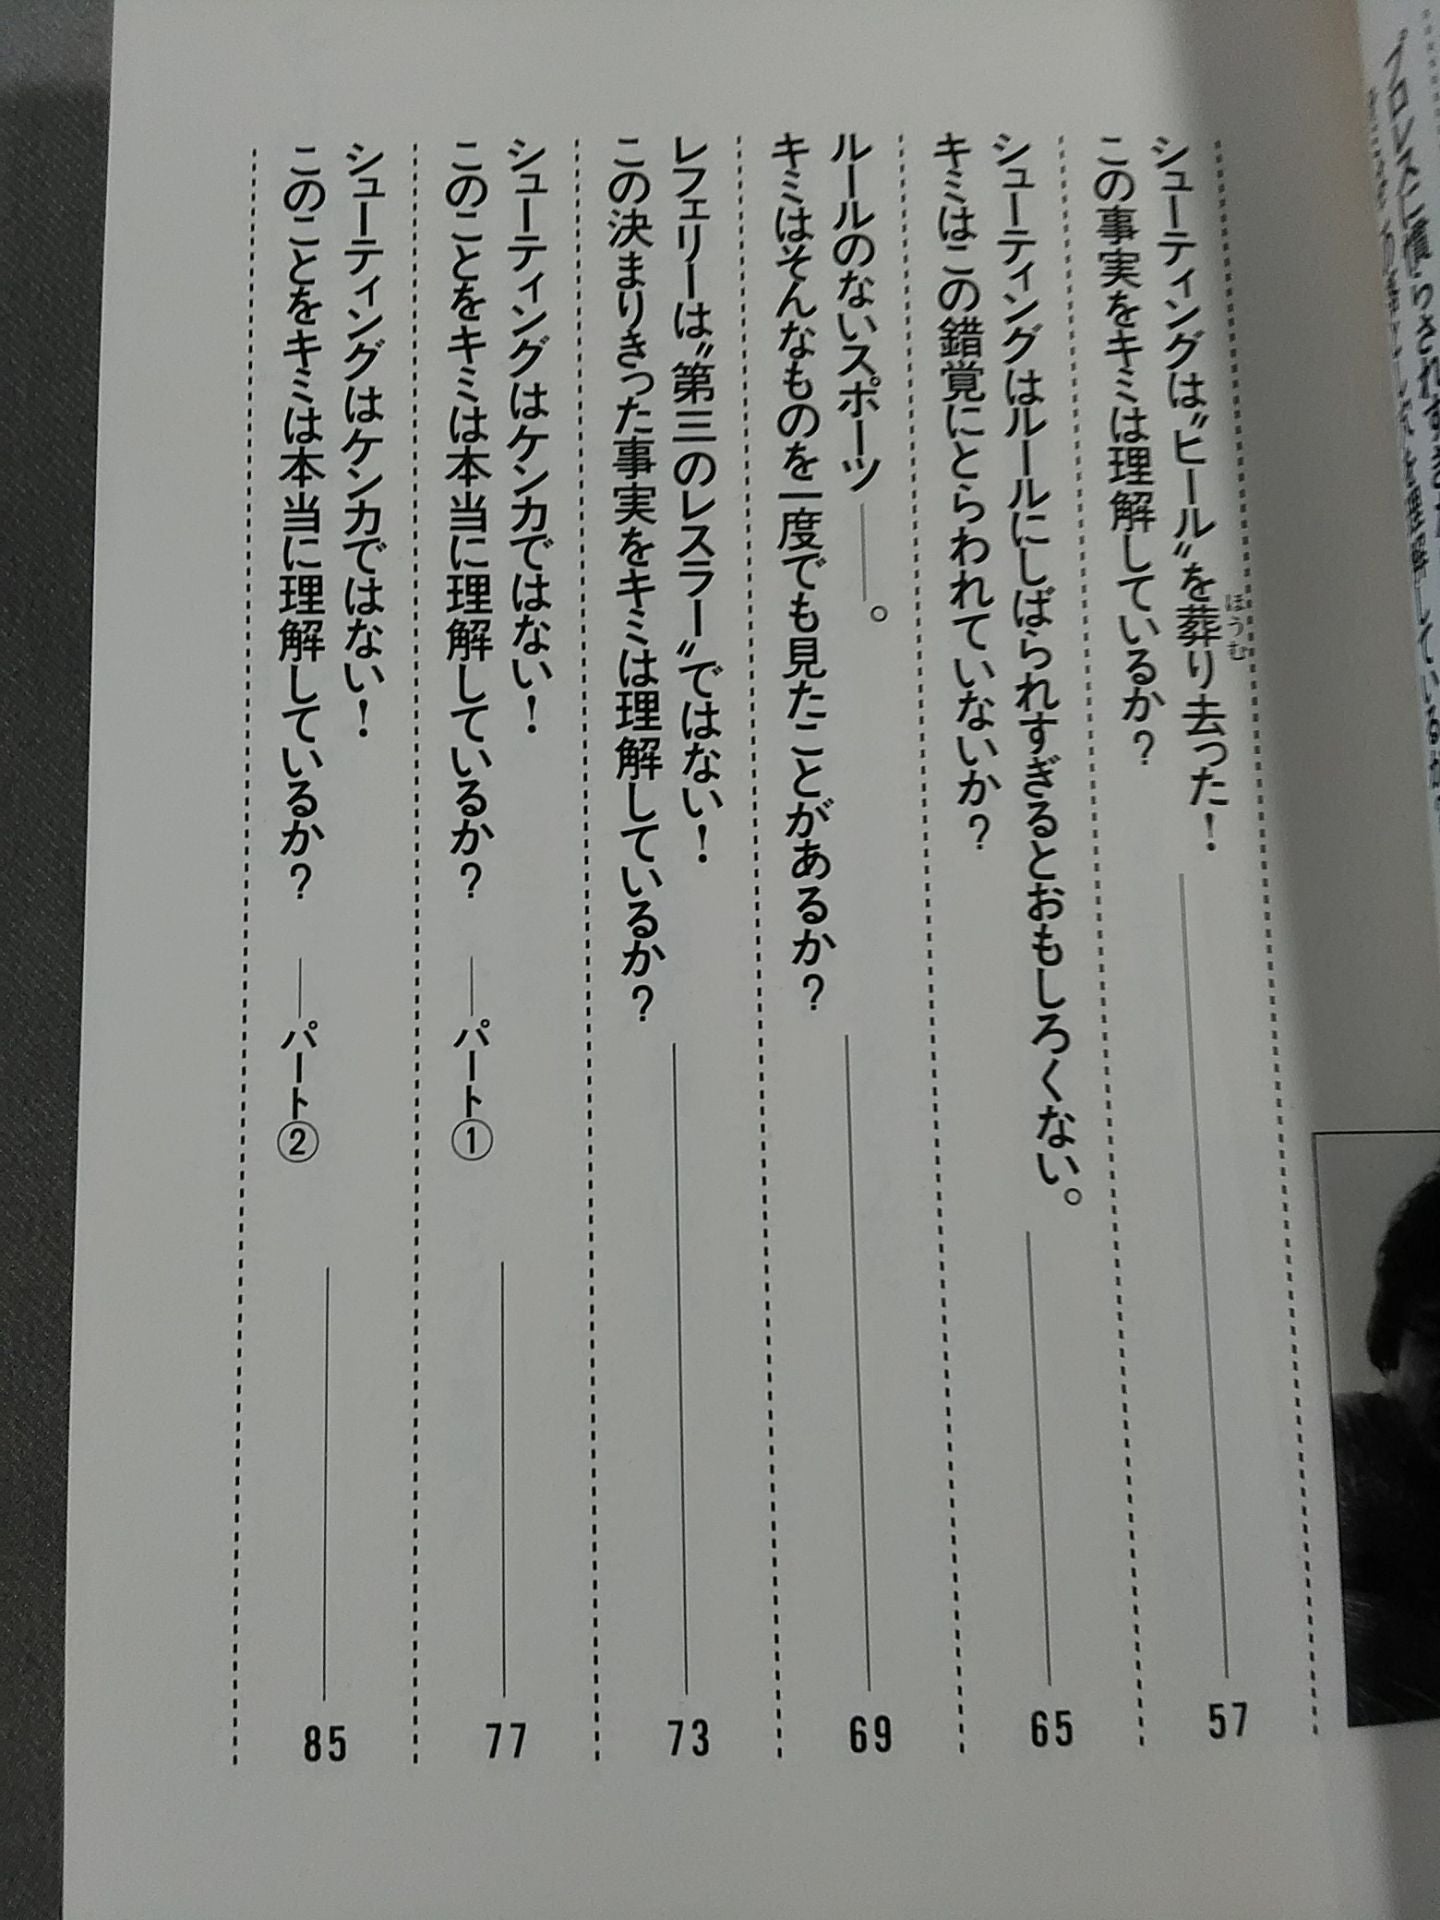 プロレスに慣らされすぎた
シューティングは〝ヒール〟を葬り去った！
ほうむ
この事実をキミは理解しているか？
57
シューティングはルールにしばられすぎるとおもしろくない。
キミはこの錯覚にとらわれていないか？
65
ルールのないスポーツ――。
キミはそんなものを一度でも見たことがあるか？
69
レフェリーは〝第三のレスラー〟ではない！
この決まりきった事実をキミは理解しているか？
73
シューティングはケンカではない！
このことをキミは本当に理解しているか？ ―パート①
77
シューティングはケンカではない！
このことをキミは本当に理解しているか？ ―パート②
85